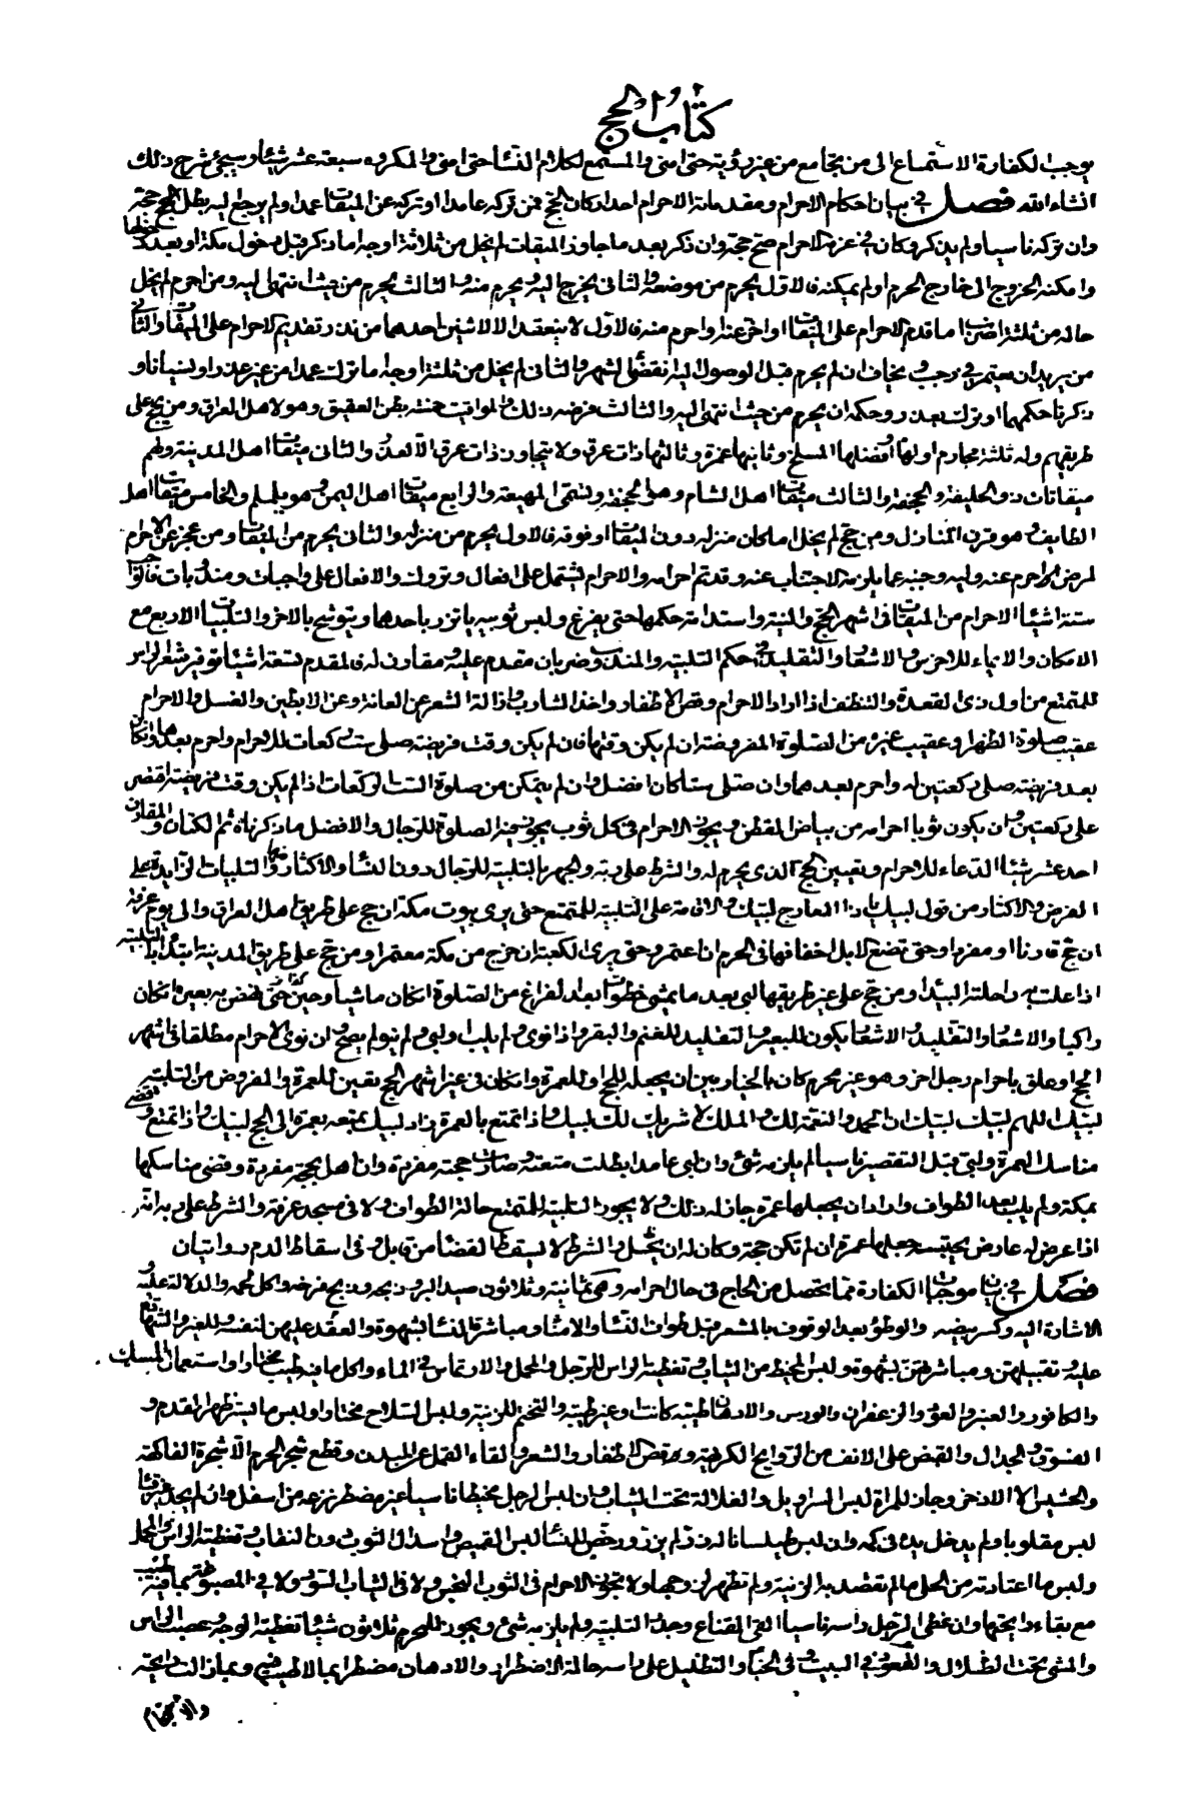 كتاب الحج
يوجب الكفارة الاستماع الى من يجامع من غير رؤية حتى امنى والمستمع لكلام النساء حتى امنى والمكروه سبعة عشر شيئا وسيجئ شرح ذلك
انشاء الله فصل في بيان احكام الاحرام ومقدماته الاحرام احد اركان الحج فمن تركه عامدا او تركه عن الميقات عمدا ولم يرجع اليه بطل حجه
وان تركه ناسيا ولم يذكر وكان في عزمه الاحرام صح حجه وان ذكر بعد ما جاوز الميقات لم يخل من ثلاثة اوجه اما ذكر قبل دخول مكة او بعد دخولها
وامكنه الخروج الى خارج الحرم او لم يمكنه فالاول يحرم من موضعه والثاني يخرج اليه ويحرم منه والثالث يحرم من حيث انتهى اليه ومن احرم لم يخل
حاله من ثلثة اضرب اما قدم الاحرام على الميقات او اخر عنه او احرم منه فالاول لا ينعقد الا لاثنين احدهما من نذر تقديم الاحرام على الميقات والثاني
من يريد ان يعتمر في رجب ويخاف ان لم يحرم قبل الوصول اليه انقضى الشهر والثاني لم يخل من ثلثة اوجه اما ترك عمدا من غير عذر او نسيانا و
ذكرنا حكمهما او ترك بعذر وحكمه ان يحرم من حيث انتهى اليه والثالث فرضه ذلك والمواقيت خمسة بطن العقيق وهو لاهل العراق ومن يحج على
طريقهم وله ثلثة محارم اولها افضلها المسلخ وثانيها غمرة وثالثها ذات عرق ولا يتجاوز ذات عرق الا لعذر والثاني ميقات اهل المدينة ولهم
ميقاتان ذو الحليفة والجحفة والثالث ميقات اهل الشام وهو الجحفة وتسمى المهيعة والرابع ميقات اهل اليمن وهو يلملم والخامس ميقات اهل
الطايف وهو قرن المنازل ومن حج لم يخل اما كان منزله دون الميقات او فوقه فالاول يحرم من منزله والثاني يحرم من الميقات ومن عجز عن الاحرام
لمرض احرم عنه وليه وجنبه عما يلزمه الاجتناب عنه وقد تم احرامه والاحرام يشتمل على افعال وتروك والافعال على واجبات ومندوبات فالواجب
ستة اشياء الاحرام من الميقات في اشهر الحج والنية واستدامة حكمها حتى يفرغ ولبس ثوبيه ياتزر باحدهما ويتوشح بالاخر والتلبيات الاربع مع
الامكان والايماء للاخرس والاشعار والتقليد في حكم التلبية والمندوب ضربان مقدم عليه ومقارن له فالمقدم تسعة اشياء توفير شعر الراس
للمتمتع من اول ذي القعدة والتنظف اذا اراد الاحرام وقص الاظفار واخذ الشارب وازالة الشعر عن العانة وعن الابطين والغسل والاحرام
عقيب صلوة الظهر او عقيب غيره من الصلوة المفروضة ان لم يكن وقتها فان لم يكن وقت فريضة صلى ست ركعات للاحرام واحرم بعدها وان كان
بعد فريضة صلى ركعتين له واحرم بعدهما وان صلى ستا كان افضل وان لم يتمكن من صلوة الست الركعات اذا لم يكن وقت فريضة اقتصر
على ركعتين وان يكون ثوبا احرامه من بياض القطن ويجوز الاحرام في كل ثوب يجوز فيه الصلوة للرجال والافضل ما ذكرناه ثم الكتان والمقارن
احد عشر شيئا الدعاء للاحرام وتعيين الحج الذي يحرم له والشرط على ربه والجهر بالتلبية للرجال دون النساء والاكثار منها والتلبيات الزايدة على
الفرض والاكثار من قول لبيك يا ذا المعارج لبيك والاقامة على التلبية للمتمتع حتى يرى بيوت مكة ان حج على طريق اهل العراق والى يوم عرفة
ان حج قارنا او مفردا وحتى تضع الابل اخفافها في الحرم ان اعتمر وحتى يرى الكعبة ان خرج من مكة معتمرا ومن حج على طريق المدينة ابتدأ بالتلبية
اذا علت به راحلته البيداء ومن حج على غير طريقها لبى بعد ما يمشي خطوات بعد الفراغ من الصلوة ان كان ماشيا وحين نهض به بعيره ان كان
راكبا والاشعار والتقليد والاشعار يكون للبعير والتقليد للغنم والبقر واذا نوى ولم يلب او لبى ولم ينو لم يصح وان نوى الاحرام مطلقا في اشهر
الحج او علق باحرام رجل اخر وهو غير محرم كان بالخيار بين ان يجعله للحج او للعمرة وان كان في غير اشهر الحج تعين للعمرة والمفروض من التلبية
لبيك اللهم لبيك لبيك ان الحمد والنعمة لك والملك لا شريك لك لبيك واذا تمتع بالعمرة زاد لبيك بمتعة بعمرة الى الحج لبيك واذا تمتع وقضى
مناسك العمرة ولبى قبل التقصير ناسيا لم يلزمه شئ وان لبى عامدا بطلت متعته وصارت حجته مفردة وان اهل بحجة مفردة وقضى مناسكها
بمكة ولم يلب بعد الطواف واراد ان يجعلها عمرة جاز له ذلك ولا يجوز التلبية للمتمتع حالة الطواف ولا في مسجد عرفة والشرط على ربه انه
اذا عرض له عارض يحبسه جعلها عمرة ان لم تكن حجة وكان له ان يحل والشرط لا يسقط القضاء من قابل وفي اسقاط الدم روايتان
فصل في بيان موجبات الكفارة مما يحصل من الحاج في حال احرامه وهي ثمانية وثلاثون صيد البر وذبحه وذبح فرخه واكل لحمه والدلالة عليه و
الاشارة اليه وكسر بيضه والوطؤ بعد الوقوف بالمشعر قبل طواف النساء والامناء ومباشرة النساء بشهوة والعقد عليهن لنفسه وللغير والشهادة
عليه وتقبيلهن ومباشرتهن بشهوة ولبس المخيط من الثياب وتغطية الراس للرجل والمحمل والارتماس في الماء واكل ما فيه طيب مختارا واستعمال المسك
والكافور والعنبر والعود والزعفران والورس والادهان طيبة كانت او غير طيبة والتختم للزينة ولبس السلاح مختارا ولبس ما يستر ظهر القدم و
الفسوق والجدال والقبض على الانف من الروايح الكريهة وقص الاظفار والشعر والقاء القمل عن البدن وقطع شجر الحرم الا شجرة الفاكهة
والحشيش الا الاذخر وجاز للمراة لبس السراويل والغلالة تحت الثياب وان لبس الرجل مخيطا ناسيا غير مضطر نزعه من اسفل وان لم يجد غير قباء
لبس مقلوبا ولم يدخل يده في كمه وان لبس طيلسانا له زر لم يزره ورخص للنساء لبس القميص واسدال الثوب دون النقاب وتغطية الراس والمحمل
ولبس ما اعتادته من الحلي ما لم تقصد به الزينة ولم تظهر لزوجها ولا يجوز الاحرام في الثوب النجس ولا في الثياب السود ولا في المصبوغة بما فيه طيب
مع بقاء رايحتها وان غطى الرجل راسه ناسيا القى القناع وجدد التلبية ولم يلزمه شئ ويجوز للمحرم ثلاثون شيئا تغطية الوجه وعصب الراس
والمشي تحت الظلال والقعود في البيت وفي الخباء والتظليل على راسه حالة الاضطرار والادهان مضطرا بما لا طيب فيه وبما زالت رايحته
والاحتجام